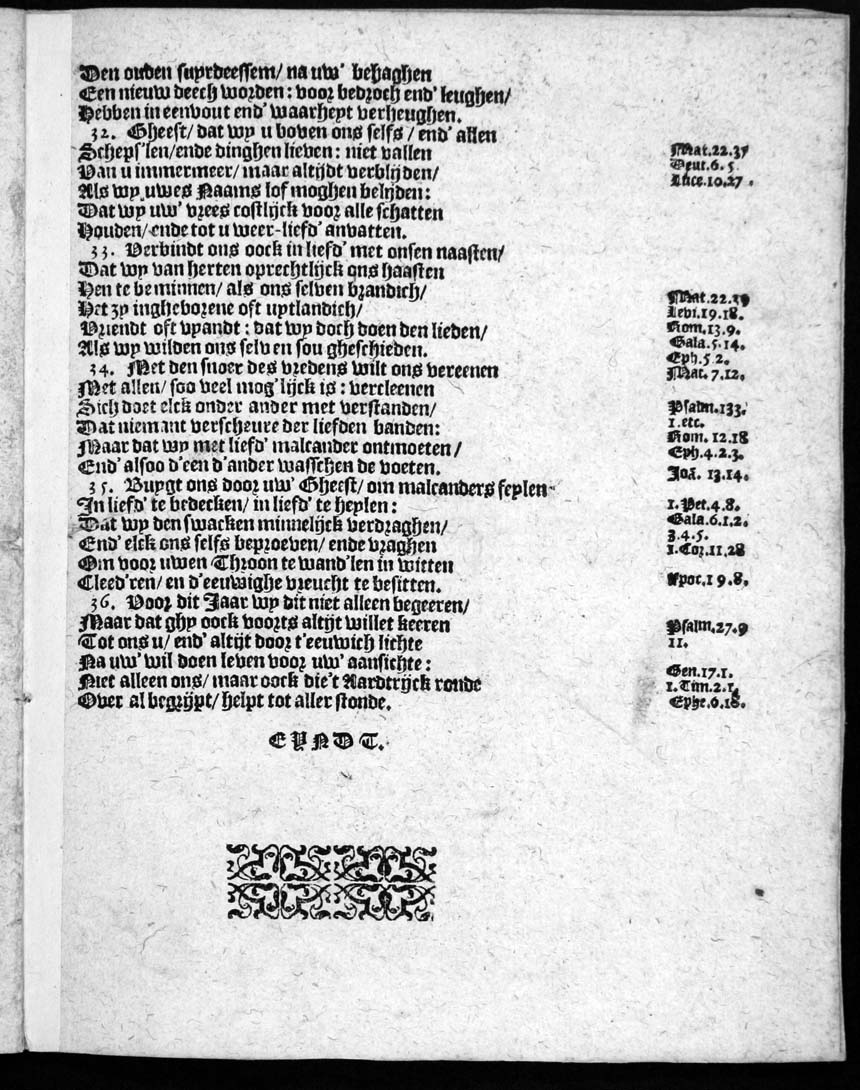 Den ouden suyrdeessem/ na uw' behaghen
Een nieuw deech worden: voor bedroch end' leughen/
Hebben in eenvout end' waarheyt verheughen.
32. Gheest/ dat wy u boven ons selfs/ end' allen
Scheps'len/ende dinghen lieven: niet vallen
Van u immermeer/ maar altijdt verblijden/
Als wy uwes Naams lof moghen belijden:
Dat wy uw' vrees costlijck voor alle schatten
Houden/ ende tot u weer-liefd' anvatten.
33. Verbindt ons oock in liefd' met onsen naasten/
Dat wy van herten oprechtlijck ons haasten
Hen te beminnen/ als ons selven brandich/
Het zy inghebozene oft uytlandich/
Vriendt oft vyandt: dat wy doch doen den lieden/
Als wy wilden ons selven sou gheschieden.
34. Met den snoer des vredens wilt ons vereenen
Met allen/ soo veel mog'lijck is: vercleenen
Sich doet elck onder ander met verstanden/
Dat niemant verscheure der liefden banden:
Maar dat wy met liefd' malcander ontmoeten/
End' alsoo d'een d'ander wasschen de voeten.
35. Buygt ons door uw' Gheest/ om malcanders feylen
In liefd' te bedecken/ in liefd' te heylen:
Dat wy den swacken minnelijck verdraghen/
End' elck ons selfs beproeven/ ende vraghen
Om voor uwen Throon te wand'len in witten
Cleed'ren/ en d'eeuwighe vreucht te besitten.
36. Voor dit Jaar wy dit niet alleen begeeren/
Maar dat ghy oock voorts altijt willet keeren
Tot ons u/ end' altijt door t'eeuwich lichte
Na uw' wil doen leven voor uw' aansichte:
Niet alleen ons/ maar oock die't Aardtrijck ronde
Over al begrijpt/ helpt tot aller stonde.
EYNDT.
Mat.22.37
Deut.6.5
Luce.10.27.
Mat.22.39
Levi.19.18.
Rom.13.9.
Gala.5.14.
Eph.5 2.
Mat.7.12.
Psalm.133.
1.etc.
Rom.12.18
Eph.4.2.3.
Joã. 13.14.
1.Pet.4.8.
Gala.6.1.2.
3.4.5.
1.Cor.11.28
Apoc.19.8.
Psalm.27.9
11.
Gen.17.1.
1.Tim.2.1.
Ephe.6.18.